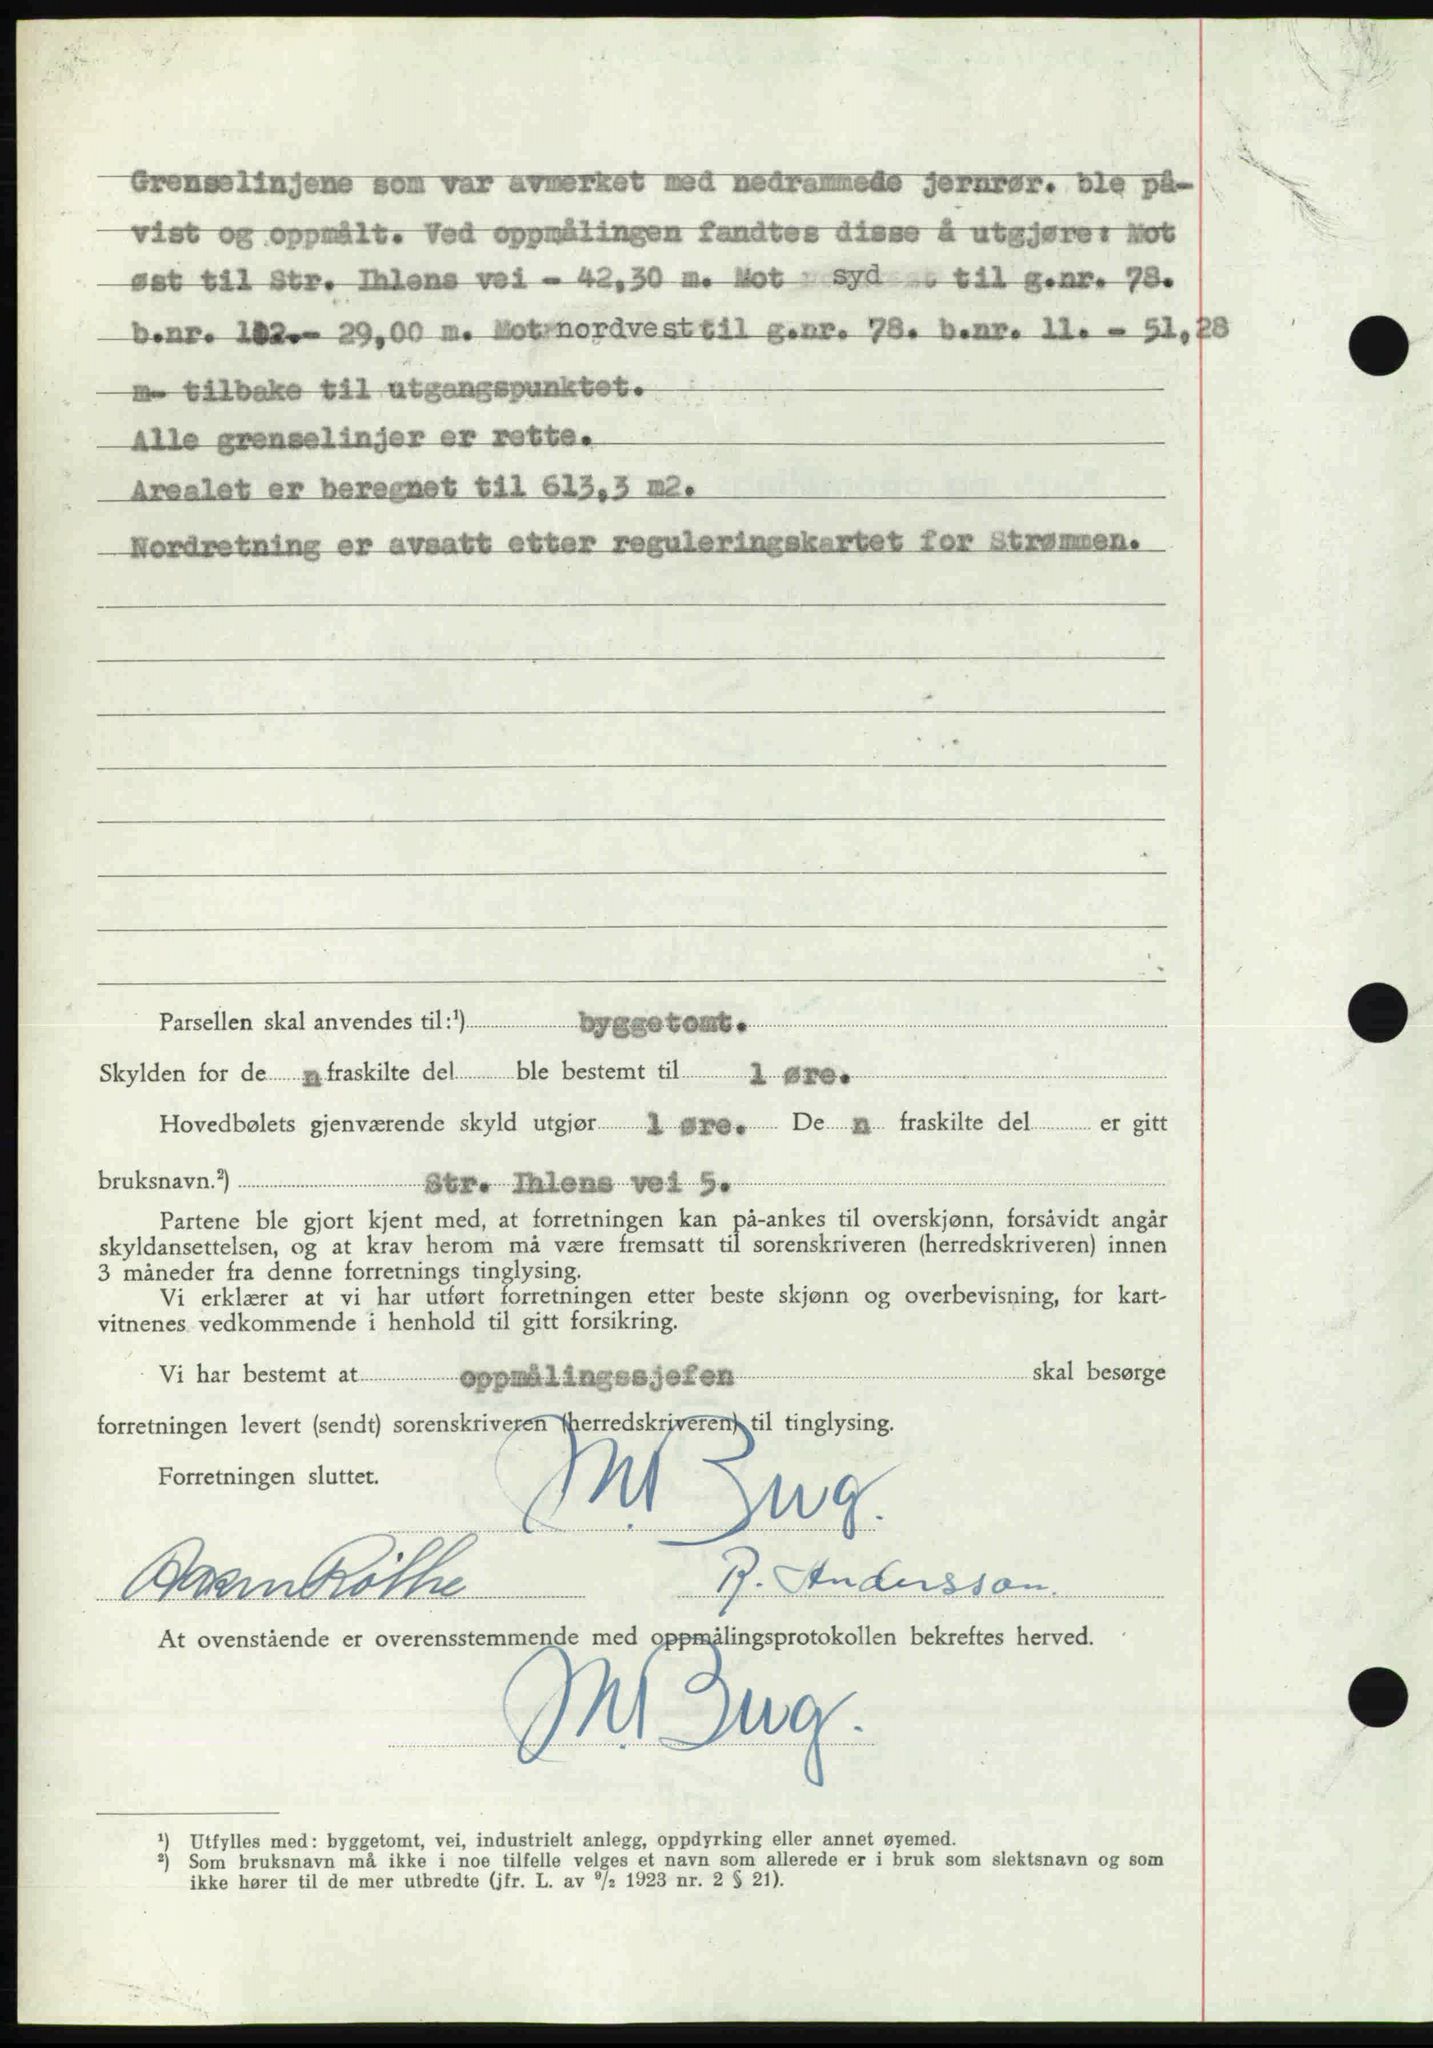 Grenselinjene som var avmerket med nedrammede jernrør. ble på-
vist og oppmålt. Ved oppmålingen fandtes disse å utgjøre: Mot
øst til Str. Ihlens vei - 42,30 m. Mot syd til g.nr. 78.
b.nr. 102.- 29,00 m. Mot nordvest til g.nr. 78. b.nr. 11. - 51,28
m- tilbake til utgangspunktet.
Alle grenselinjer er rette.
Arealet er beregnet til 613,3 m2.
Nordretning er avsatt etter reguleringskartet for Strømmen.
Parsellen skal anvendes til:¹) byggetomt.
Skylden for de n fraskilte del ble bestemt til 1 øre.
Hovedbølets gjenværende skyld utgjør 1 øre. De n fraskilte del er gitt
bruksnavn.²) Str. Ihlens vei 5.
Partene ble gjort kjent med, at forretningen kan på-ankes til overskjønn, forsåvidt angår
skyldansettelsen, og at krav herom må være fremsatt til sorenskriveren (herredskriveren) innen
3 måneder fra denne forretnings tinglysing.
Vi erklærer at vi har utført forretningen etter beste skjønn og overbevisning, for kart-
vitnenes vedkommende i henhold til gitt forsikring.
Vi har bestemt at oppmålingssjefen skal besørge
forretningen levert (sendt) sorenskriveren (herredskriveren) til tinglysing.
Forretningen sluttet.
R. Andersson.
At ovenstående er overensstemmende med oppmålingsprotokollen bekreftes herved.
¹) Utfylles med: byggetomt, vei, industrielt anlegg, oppdyrking eller annet øyemed.
²) Som bruksnavn må ikke i noe tilfelle velges et navn som allerede er i bruk som slektsnavn og som
ikke hører til de mer utbredte (jfr. L. av 9/2 1923 nr. 2 § 21).